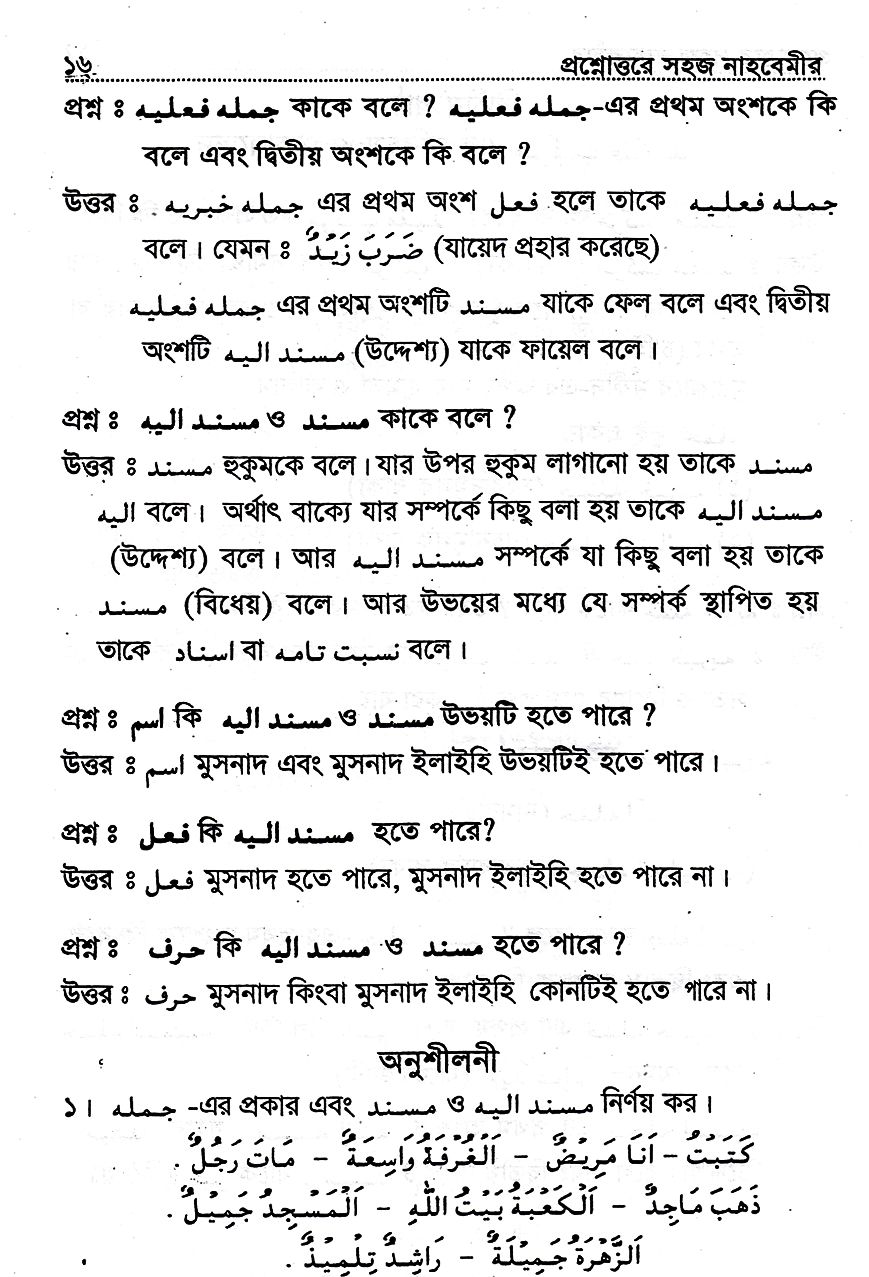 ১৬
প্রশ্নোত্তরে সহজ নাহবেমীর
প্রশ্ন ঃ جمله فعليه কাকে বলে ? جمله فعليه-এর প্রথম অংশকে কি
বলে এবং দ্বিতীয় অংশকে কি বলে ?
উত্তর ঃ جمله خبريه এর প্রথম অংশ فعل হলে তাকে جمله فعليه
বলে। যেমন ঃ ضَرَبَ زَيْدٌ (যায়েদ প্রহার করেছে)
جمله فعليه এর প্রথম অংশটি مسند যাকে ফেল বলে এবং দ্বিতীয়
অংশটি مسند اليه (উদ্দেশ্য) যাকে ফায়েল বলে।
প্রশ্ন ঃ مسند اليه ও مسند কাকে বলে ?
উত্তর ঃ مسند হুকুমকে বলে। যার উপর হুকুম লাগানো হয় তাকে مسند
اليه বলে। অর্থাৎ বাক্যে যার সম্পর্কে কিছু বলা হয় তাকে مسند اليه
(উদ্দেশ্য) বলে। আর مسند اليه সম্পর্কে যা কিছু বলা হয় তাকে
مسند (বিধেয়) বলে। আর উভয়ের মধ্যে যে সম্পর্ক স্থাপিত হয়
তাকে اسناد বা نسبت تامه বলে।
প্রশ্ন ঃ اسم কি مسند اليه ও مسند উভয়টি হতে পারে ?
উত্তর ঃ اسم মুসনাদ এবং মুসনাদ ইলাইহি উভয়টিই হতে পারে।
প্রশ্ন ঃ فعل কি مسند اليه হতে পারে?
উত্তর ঃ فعل মুসনাদ হতে পারে, মুসনাদ ইলাইহি হতে পারে না।
প্রশ্ন ঃ حرف কি مسند اليه ও مسند হতে পারে ?
উত্তর ঃ حرف মুসনাদ কিংবা মুসনাদ ইলাইহি কোনটিই হতে পারে না।
অনুশীলনী
১। جمله -এর প্রকার এবং مسند ও مسند اليه নির্ণয় কর।
كَتَبْتُ – اَنَا مَرِيْضٌ – اَلْغُرْفَةُ وَاسِعَةٌ – مَاتَ رَجُلٌ .
ذَهَبَ مَاجِدٌ – اَلْكَعْبَةُ بَيْتُ اللّٰهِ – اَلْمَسْجِدُ جَمِيْلٌ .
اَلزَّهْرَةُ جَمِيْلَةٌ – رَاشِدٌ تِلْمِيْذٌ .